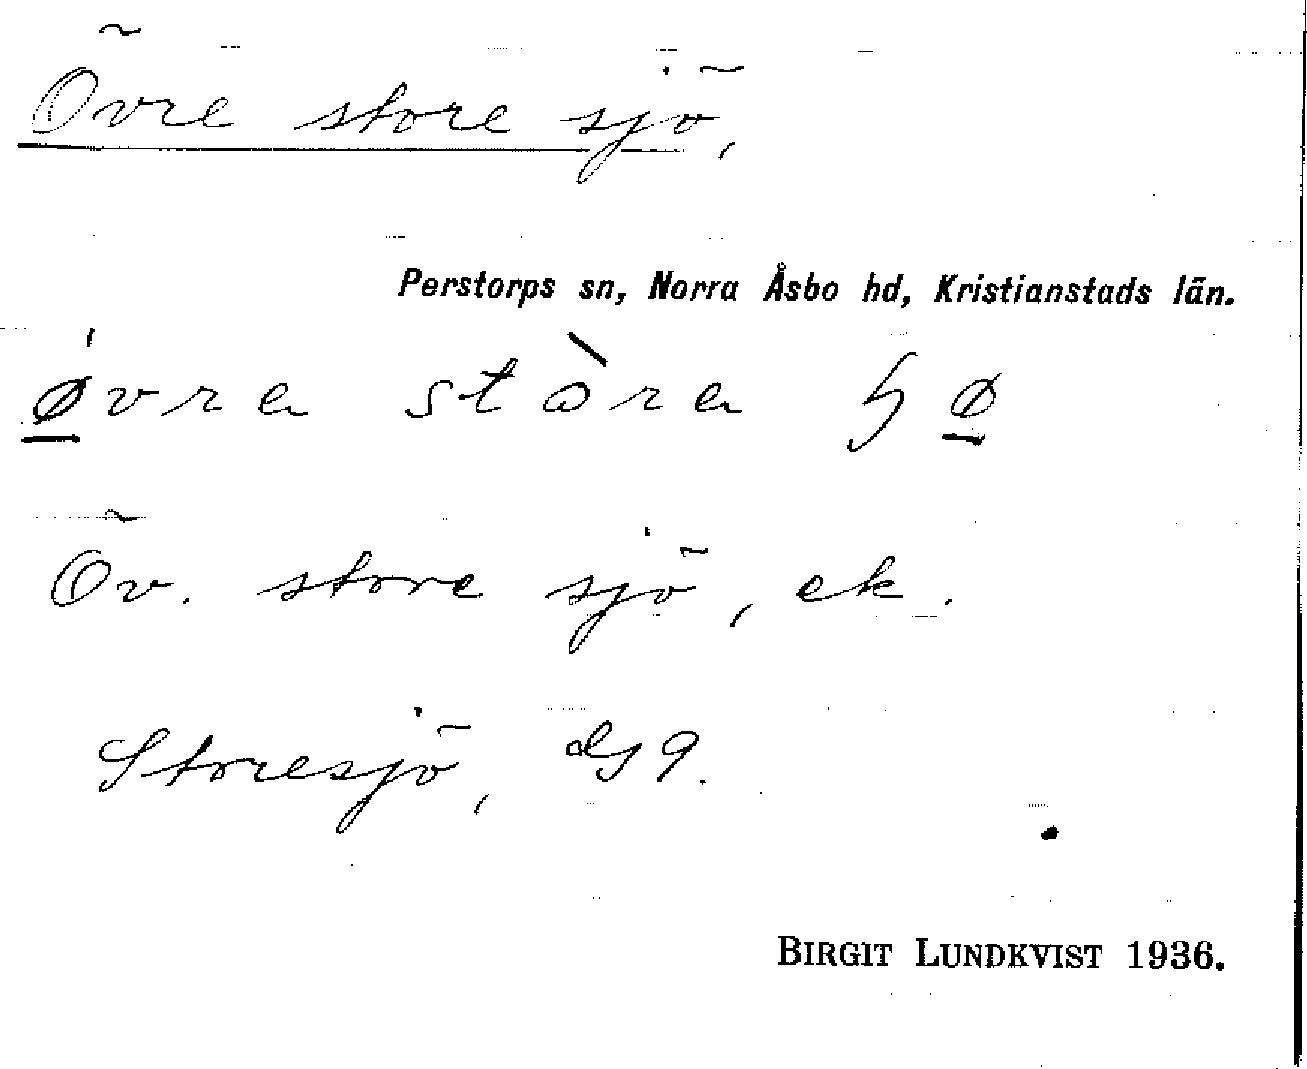 Övre store sjö,
Perstorps sn, Norra Åsbo hd, Kristianstads län.
ǿvra stòra ɧø
Öv. store sjö, ek.
Storesjö, 9.
BIRGIT LUNDKVIST 1936.